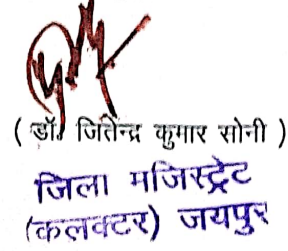 ( डॉ. जितेन्द्र कुमार सोनी )
जिला मजिस्ट्रेट
(कलक्टर) जयपुर